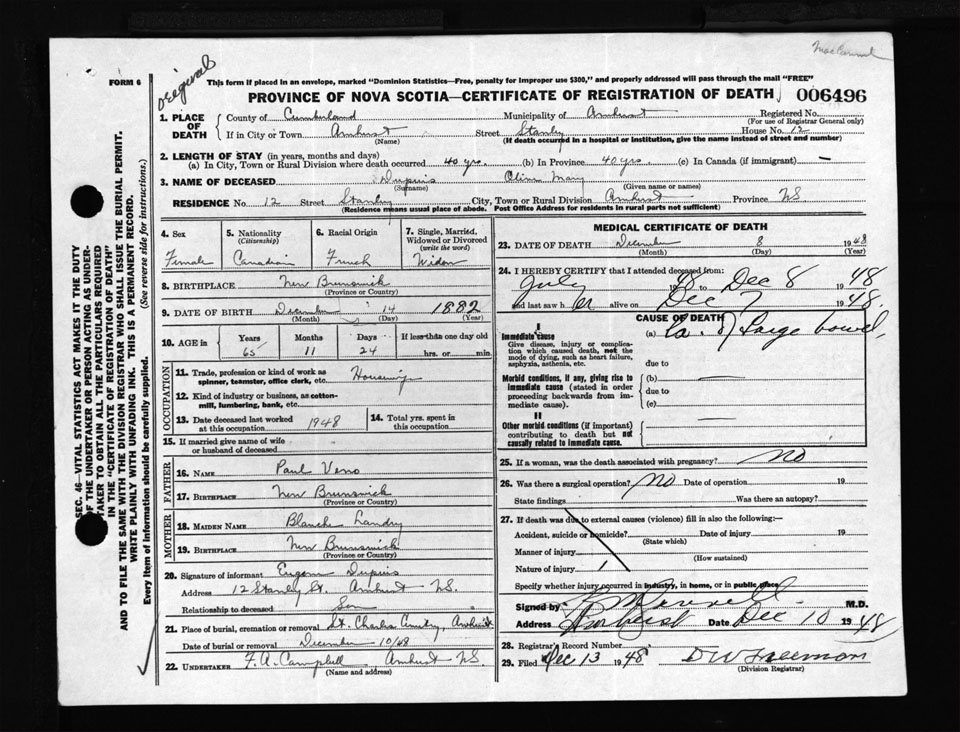 Original
FORM 6
This form if placed in an envelope, marked "Dominion Statistics—Free, penalty for improper use $300," and properly addressed will pass through the mail "FREE"
PROVINCE OF NOVA SCOTIA—CERTIFICATE OF REGISTRATION OF DEATH 006496
1. PLACE OF DEATH
County of Cumberland Municipality of Amherst Registered No.
(For use of Registrar General only)
If in City or Town Amherst Street Stanley House No. 12
(Name) (If death occurred in a hospital or institution, give the name instead of street and number)
2. LENGTH OF STAY (in years, months and days)
(a) In City, Town or Rural Division where death occurred 40 yrs. (b) In Province 40 yrs. (c) In Canada (if immigrant) —
3. NAME OF DECEASED Dupuis Olive Mary
(Surname) (Given name or names)
RESIDENCE No. 12 Street Stanley City, Town or Rural Division Amherst Province NS
(Residence means usual place of abode. Post Office Address for residents in rural parts not sufficient)
4. Sex Female
5. Nationality (Citizenship) Canadian
6. Racial Origin French
7. Single, Married, Widowed or Divorced (write the word) Widow
8. BIRTHPLACE New Brunswick
(Province or Country)
9. DATE OF BIRTH December 14 1882
(Month) (Day) (Year)
10. AGE in Years 65 Months 11 Days 24 If less than one day old hrs. or min.
OCCUPATION
11. Trade, profession or kind of work as spinner, teamster, office clerk, etc. Housewife
12. Kind of industry or business, as cotton-mill, lumbering, bank, etc.
13. Date deceased last worked at this occupation 1948
14. Total yrs. spent in this occupation
15. If married give name of wife or husband of deceased
FATHER
16. NAME Paul Veno
17. BIRTHPLACE New Brunswick
(Province or Country)
MOTHER
18. MAIDEN NAME Blanche Landry
19. BIRTHPLACE New Brunswick
(Province or Country)
20. Signature of informant Dupuis
Address 12 Stanley St. Amherst NS.
Relationship to deceased Son
21. Place of burial, cremation or removal St. Charles Amherst
Date of burial or removal December 10/48
22. UNDERTAKER F. A. Campbell, Amherst NS
(Name and address)
MEDICAL CERTIFICATE OF DEATH
23. DATE OF DEATH December 8 1948
(Month) (Day) (Year)
24. I HEREBY CERTIFY that I attended deceased from:
July 1948 to Dec 8 1948
and last saw her alive on Dec 7 1948.
CAUSE OF DEATH
I
Immediate cause
Give disease, injury or complication which caused death, not the mode of dying, such as heart failure, asphyxia, asthenia, etc.
(a) Ca. of Large bowel
due to
Morbid conditions, if any, giving rise to immediate cause (stated in order proceeding backwards from immediate cause).
(b) —
due to
(c)
II
Other morbid conditions (if important) contributing to death but not causally related to immediate cause.
25. If a woman, was the death associated with pregnancy? NO
26. Was there a surgical operation? NO Date of operation 19
State findings Was there an autopsy?
27. If death was due to external causes (violence) fill in also the following:—
Accident, suicide or homicide? Date of injury 19
(State which)
Manner of injury
(How sustained)
Nature of injury
Specify whether injury occurred in industry, in home, or in public place
Signed by M.D.
Address Amherst Date Dec 10 1948
28. Registrar's Record Number
29. Filed Dec 13 1948 D W Freeman
(Division Registrar)
SEC. 46—VITAL STATISTICS ACT MAKES IT THE DUTY
OF THE UNDERTAKER OR PERSON ACTING AS UNDER-
TAKER TO OBTAIN ALL THE PARTICULARS REQUIRED
IN THE "CERTIFICATE OF REGISTRATION OF DEATH"
AND TO FILE THE SAME WITH THE DIVISION REGISTRAR WHO SHALL ISSUE THE BURIAL PERMIT.
WRITE PLAINLY WITH UNFADING INK. THIS IS A PERMANENT RECORD.
Every item of information should be carefully supplied. (See reverse side for instructions.)